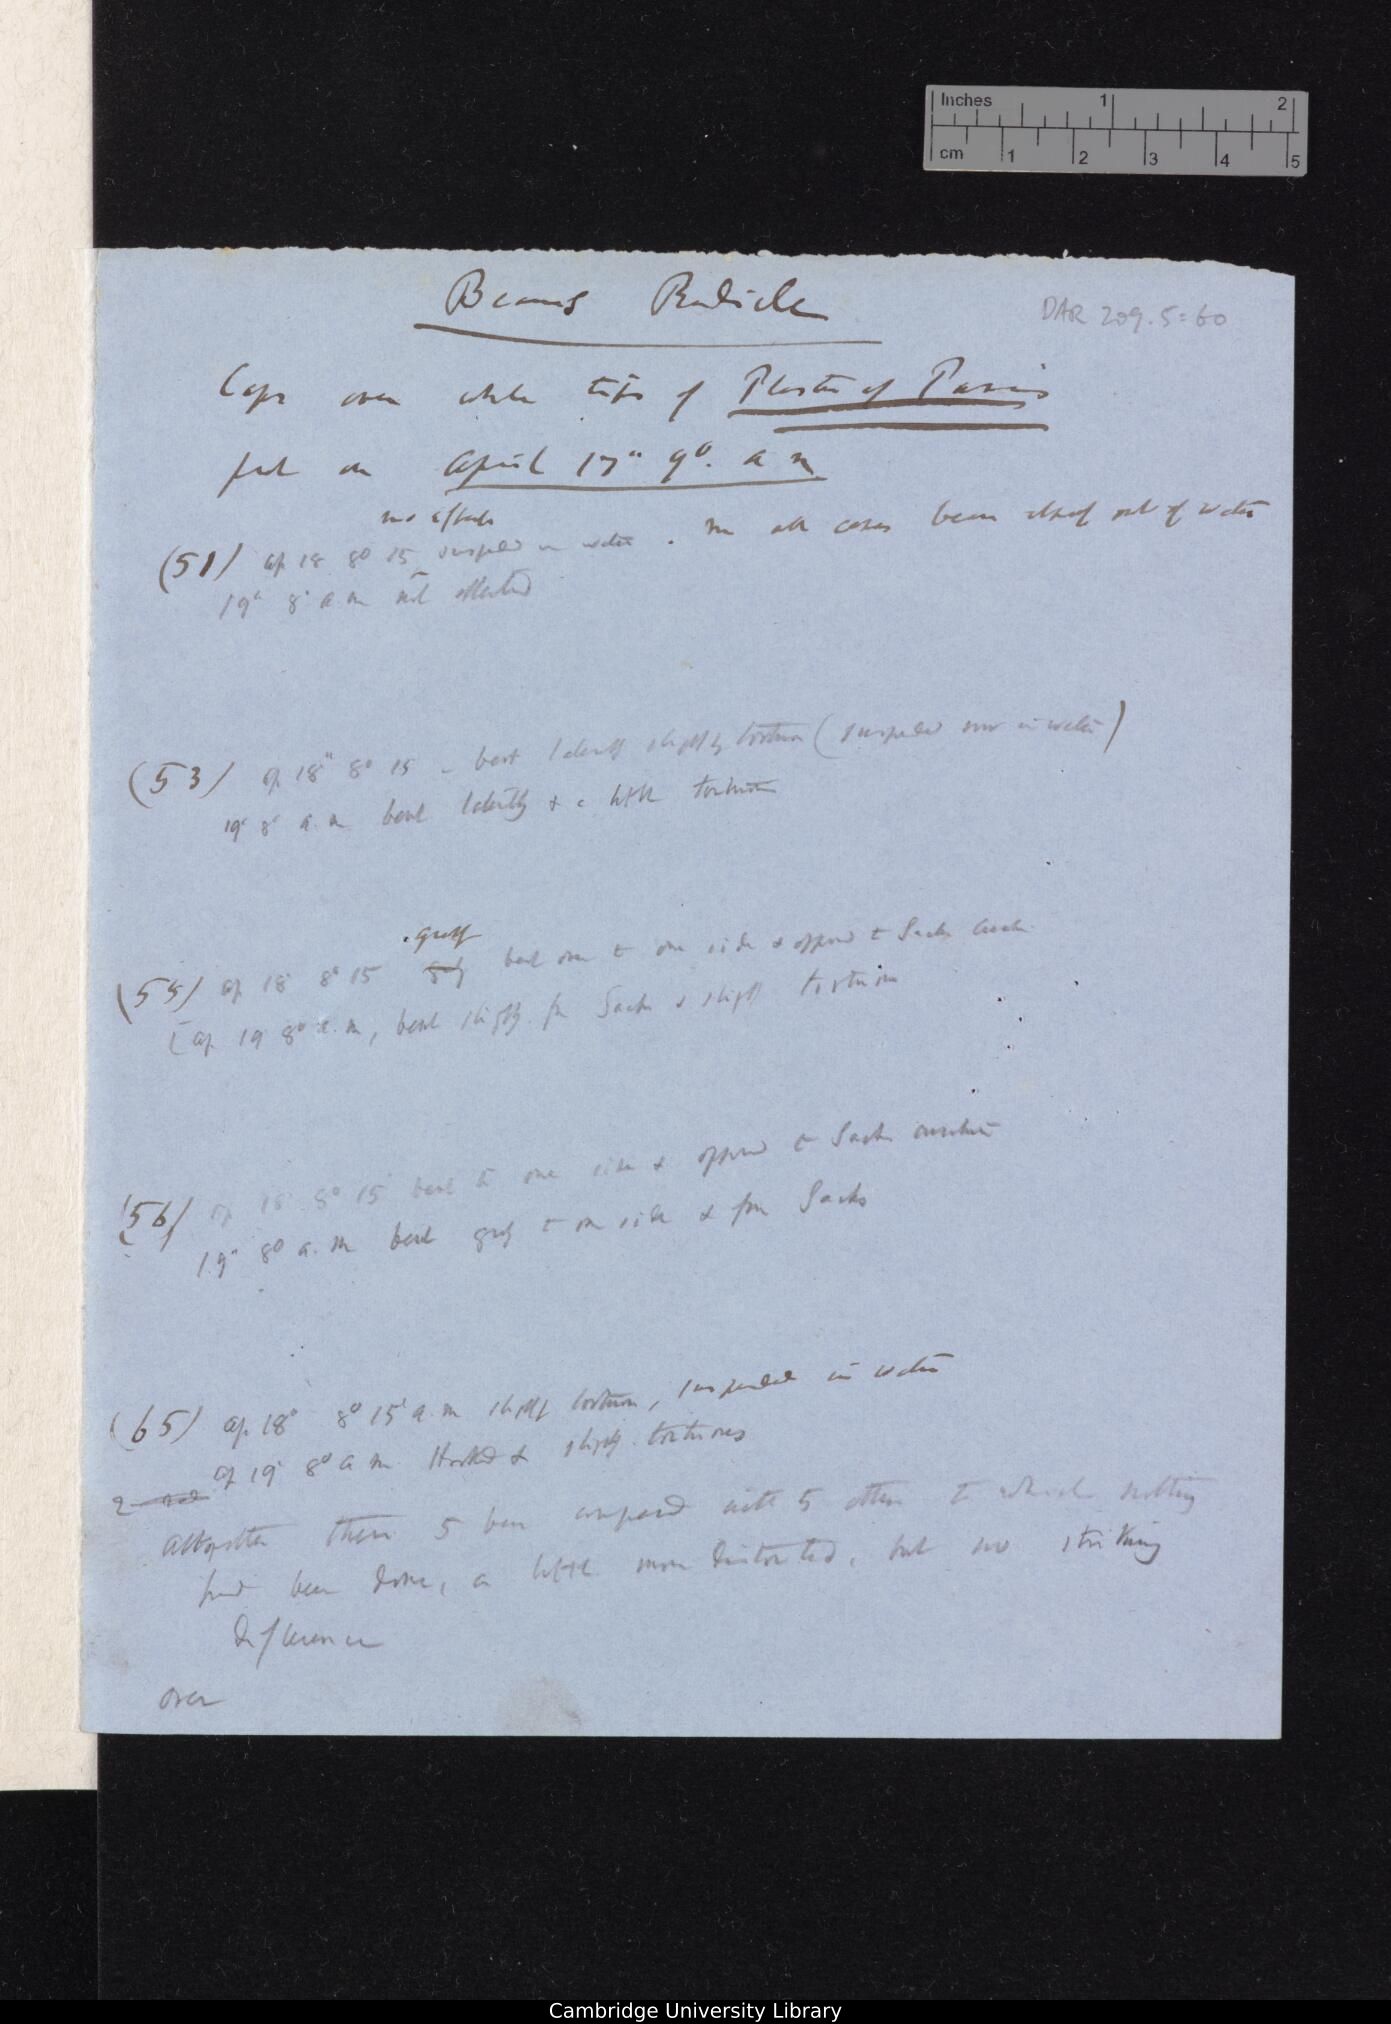 Inches 1 2
cm 1 2 3 4 5
Beans Radicle
DAR 209.5:60
Caps over whole tips of Plaster of Paris
put on April 17" 9°. a m
no effect
(51) Ap 18 8° 15 suspended in water. In all cases bean itself out of water
19" 8° a.m not affected
(53) Ap 18" 8° 15 - bent laterally slightly tortuous (suspended now in water)
19" 8° a.m bent laterally & a little tortuous
greatly
Ap 18 8° 15 bent over to one side & opposed to Sachs
[Ap. 19 8° a.m, bent slightly from Sachs & slightly tortuous
(56) Ap 18 8° 15 bent to one side & opposed to Sachs curvature
19" 8° a.m bent greatly to one side & from Sachs
(65) Ap. 18° 8° 15' a.m slightly tortuous, suspended in water
Ap 19 8° a m Hooked & slightly tortuous
Altogether these 5 been compared with 5 others to which nothing
had been done, a little more distorted, but no striking
difference
over
Cambridge University Library